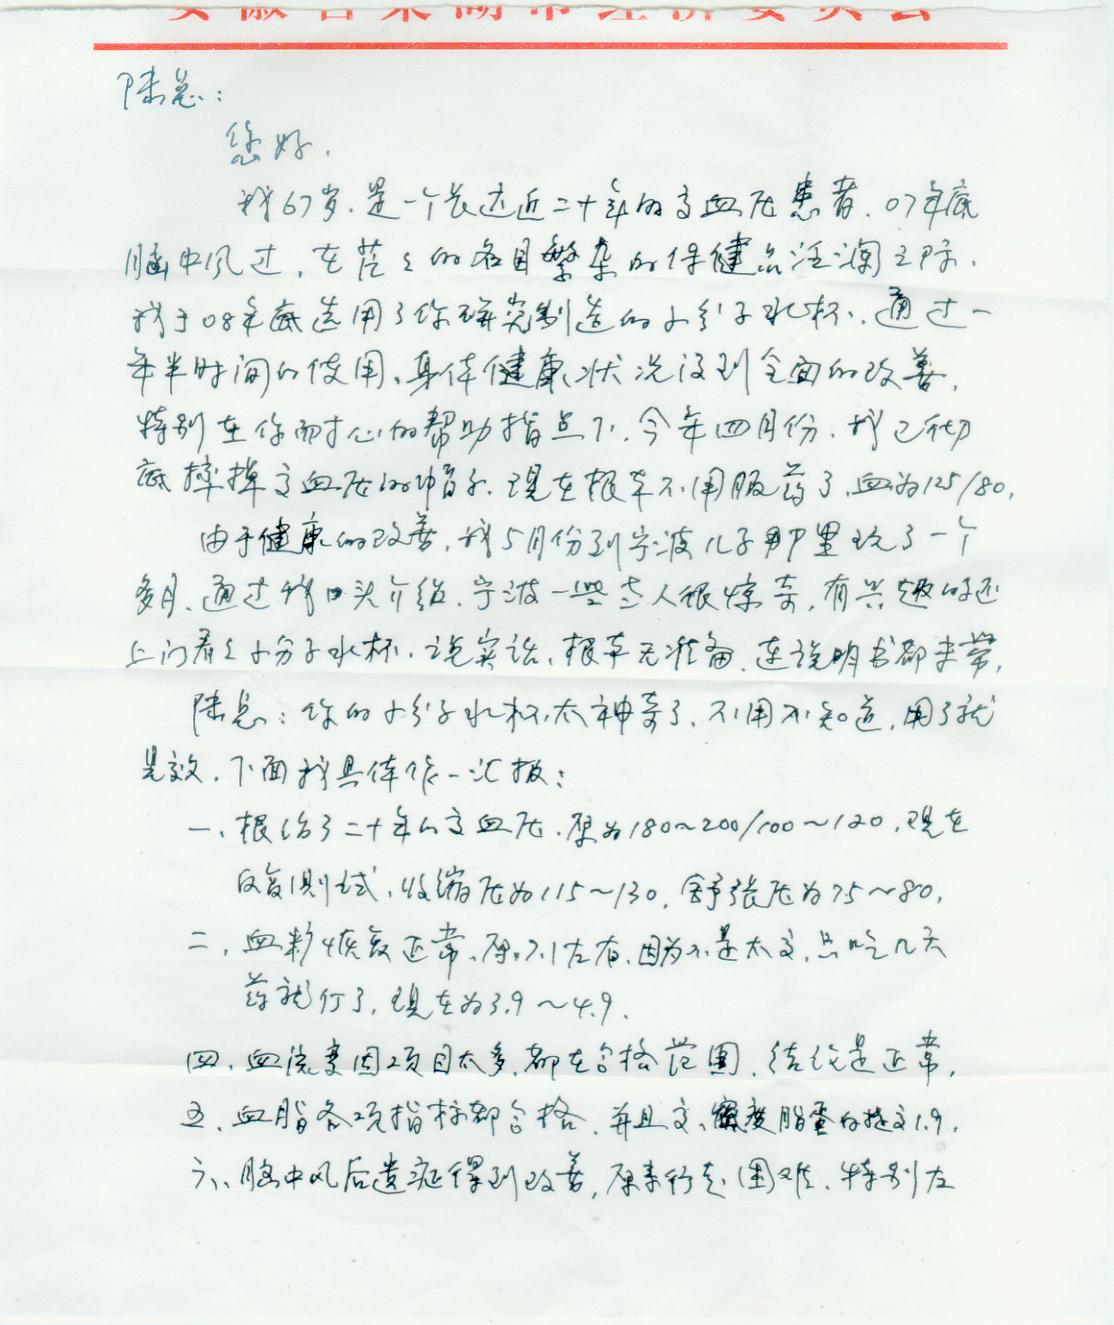 安徽省巢湖市经济委员会
陆总：
您好．
我67岁．是一个长达近二十年的高血压患者．07年底
脑中风过，在茫茫的名目繁杂的保健品泛滥之际．
我于08年底选用了你研究制造的小分子水杯．通过一
年半时间的使用、身体健康状况得到全面的改善．
特别在你耐心的帮助指点下．今年四月份．我已彻
底摔掉高血压的帽子．现在根本不用服药了．血为125/80．
由于健康的改善，我5月份到宁波儿子那里玩了一个
多月．通过我口头介绍．宁波一些老人很惊奇．有兴趣的还
上门看看小分子水杯．说实话、根本无准备、连说明书都未带．
陆总：你的小分子水杯太神奇了．不用不知道，用了就
见效．下面我具体作一汇报：
一、根治了二十年的高血压．原为180～200/100～120．现在
反复测试，收缩压为115～130．舒张压为75～80．
二．血糖恢复正常．原7.1左右．因为不是太高．只吃几天
药就行了．现在为3.9～4.9．
四、血流变因项目太多．都在合格范围．结论是正常．
五、血脂各项指标都合格．并且高密度脂蛋白提高1.9．
六、脑中风后遗症得到改善，原来行走困难．特别左